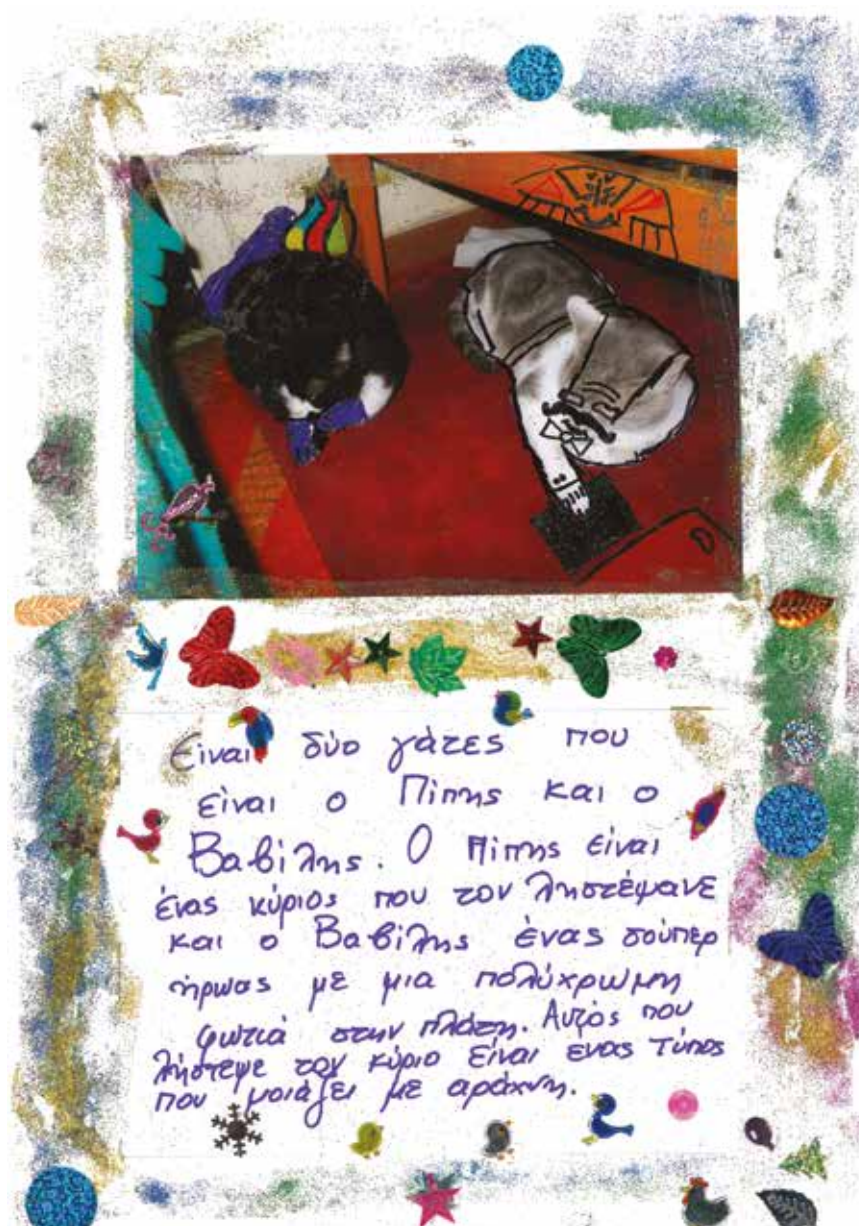 Είναι δύο γάτες που
είναι ο Πίπης και ο
Βαβίλης. Ο Πίπης είναι
ένας κύριος που τον ληστέψανε
και ο Βαβίλης ένας σούπερ
ήρωας με μια πολύχρωμη
φωτιά στην πλάτη. Αυτός που
λήστεψε τον κύριο είναι ενας τύπος
που μοιάζει με αράχνη.